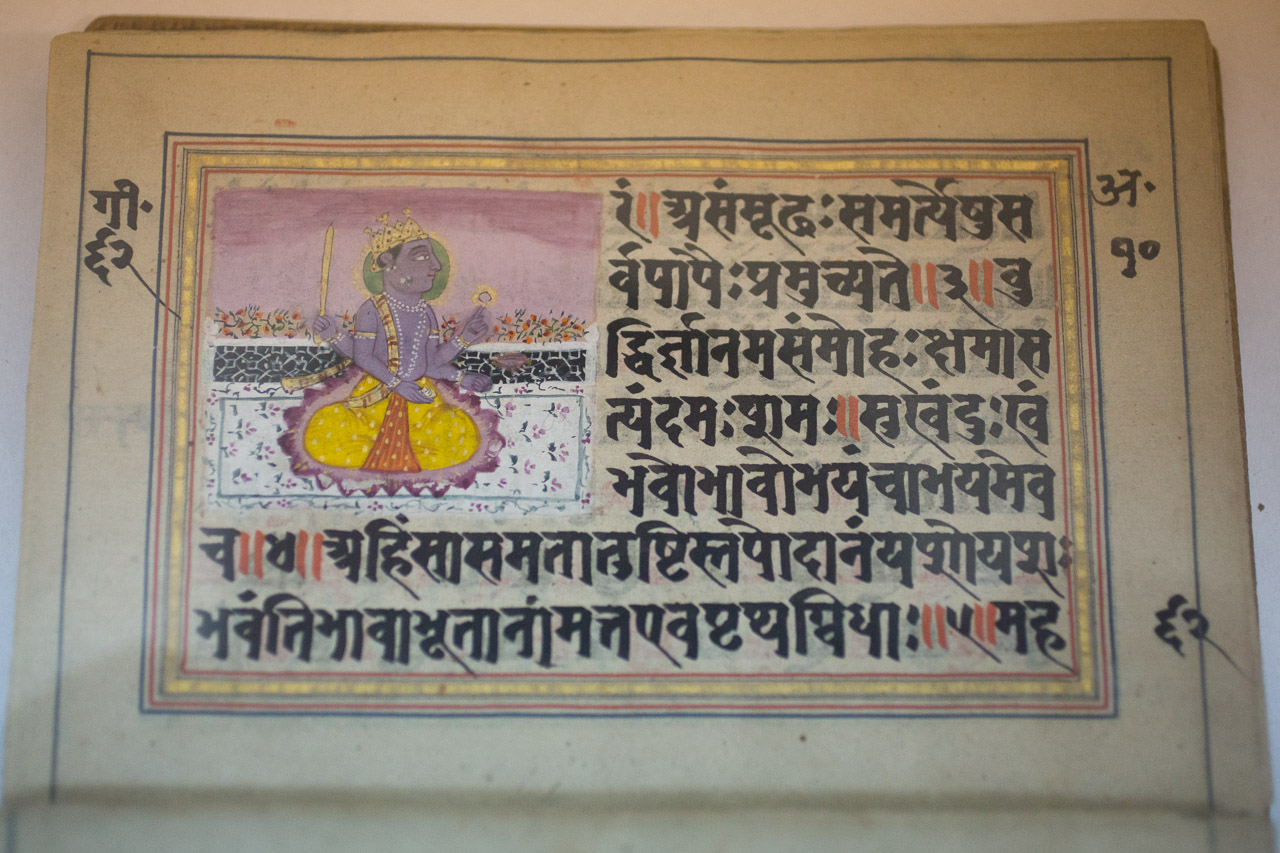 गी॰
६२
अ॰
१०
रं॥असंमूढः समर्त्येषुस
र्वपापैःप्रमुच्यते॥३॥बु
द्धिर्ज्ञानमसंमोहःक्षमास
त्यंदमःशमः॥सुखंदुःखं
भवोभावोभयंचाभयमेव
च॥४॥अहिंसासमतातुष्टिस्तपोदानंयशोयशः
भवंतिभावाभूतानांमत्तएवपृथग्विधाः॥५॥मह
६२